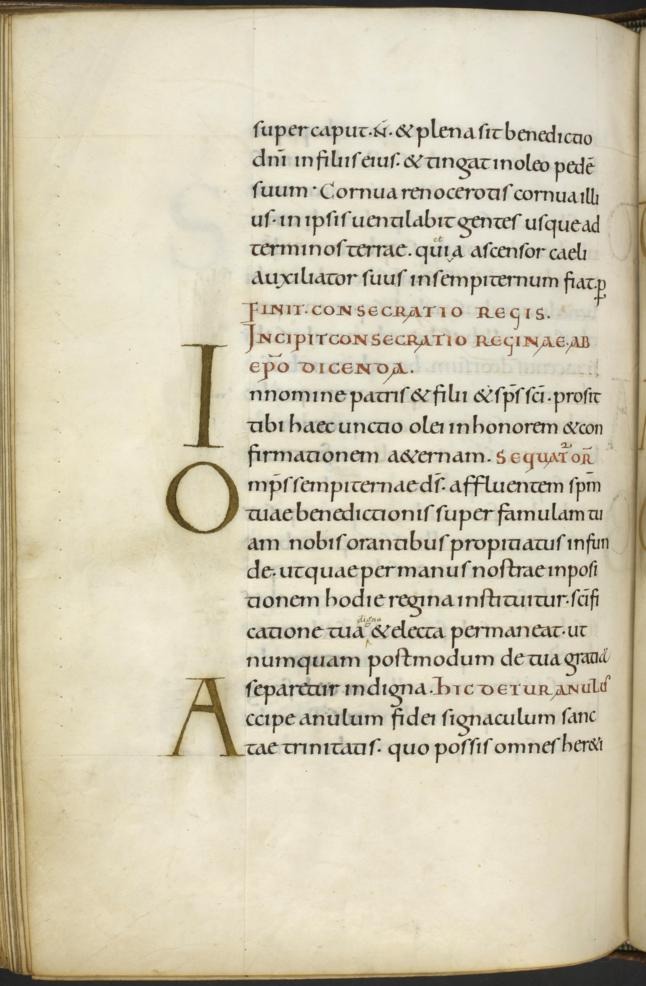 super caput · N̄ · & plena sit benedictio
dn̄i in filiis eius · & tingat in oleo pedē
suum · Cornua renocerotis cornua illi
us · in ipsis uentilabit gentes usque ad
terminos terrae · quia ascensor caeli
auxiliator suus in sempiternum fiat · p̄
FINIT · CONSECRATIO REGIS ·
INCIPIT CONSECRATIO REGINAE · AB
EPŌ DICENDA ·
In nomine patris & filii & sp̄s sc̄i · prosit
tibi haec unctio olei in honorem & con
firmationem aeternam · SEQUAT̃ OR̄
Omp̄s sempiternae d̄s · affluentem sp̄m
tuae benedictionis super famulam tu
am nobis orantibus propitiatus infun
de · ut quae per manus nostrae inposi
tionem hodie regina instituitur · sc̄ifi
catione tua digna & electa permaneat · ut
numquam postmodum de tua gratia
separetur indigna · HIC DETUR ANULUS
Accipe anulum fidei signaculum sanc
tae trinitatis · quo possis omnes her&i